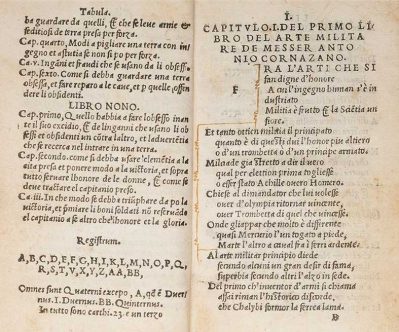 Tabula.
ba guardare da quelli, & che se leue armie &
seditiosi de terra presi per forza.
Cap. quarto, Modi a pigliare una terra con in-
gegno et astutia se non si po per forza.
Cap. v. Ingāni et fraudi che se usano da li obsessi.
Cap. sexto. Come si debba guardare una terra
obsessa, et fare reparo a le caue, et p quelle, offen-
dere li obsidenti.
LIBRO NONO.
Cap. primo, Quello habbia a fare lo obsesso inan-
te il suo excidio, & de linganni che usano gli ob-
sessi et obsidenti un cōtra laltro, et laduertētia
che se recerca nel intrare in una terra.
Cap. secondo. come si debba usare clemētia a la
alta presa et ponere modo a la uictoria, et sopra
tutto seruare lhonore de le donne, & come se
deue tractare el capitanio preso.
Cap. iii. In che modo se debba triūphare da po la
uictoria, et pmiare li boni soldati nō reseruādo
el capitanio a se altro che lhonore et la gloria.
Registrum.
A, B, C, D, E, F, G, H, I, K, L, M, N, O, P, Q,
R, S, T, V, X, Y, Z, AA, BB,
Omnes sunt Quaterni excepto, A, qd est Duer-
nus. I. Duernus. BB. Quinternus.
In tutto sono carthi. 23. e un terzo
I.
CAPITVLO. I. DEL PRIMO LI
BRO DEL ARTE MILITA
RE DE MESSER ANTO
NIO CORNAZANO.
F
RA L'ARTI CHE SI
san digne d'honore
A cui l'ingegno human s'è in
dustriato
Militia è frutto & la Sciētia un
fiore.
Et tanto otticn militia il principato
quanto è di questi hui l'honor piu altiero
o d'un trombetta o d'un principe armato.
Militade gia
pur election prima togliesse
o esser stato Achille ouero Homero
Chiese al dimandator che lui uolesse
ouer d'olympia ritornar uincente,
ouer Trombetta di quel che uincesse.
Onde gliappar che molto è differente
quasi Mercurio l'un togato a piede,
Marte l'altro a caual fra i ferri ardente.
Al arte militar principio diede
secundo alcuni un gran desir di fama,
superbia secondo altri l'alzo in sede.
Del primo ch'inuentor d'armi si chiama
assai riman l'historico disarede,
che Chalybi formar la ferrea lama.
B